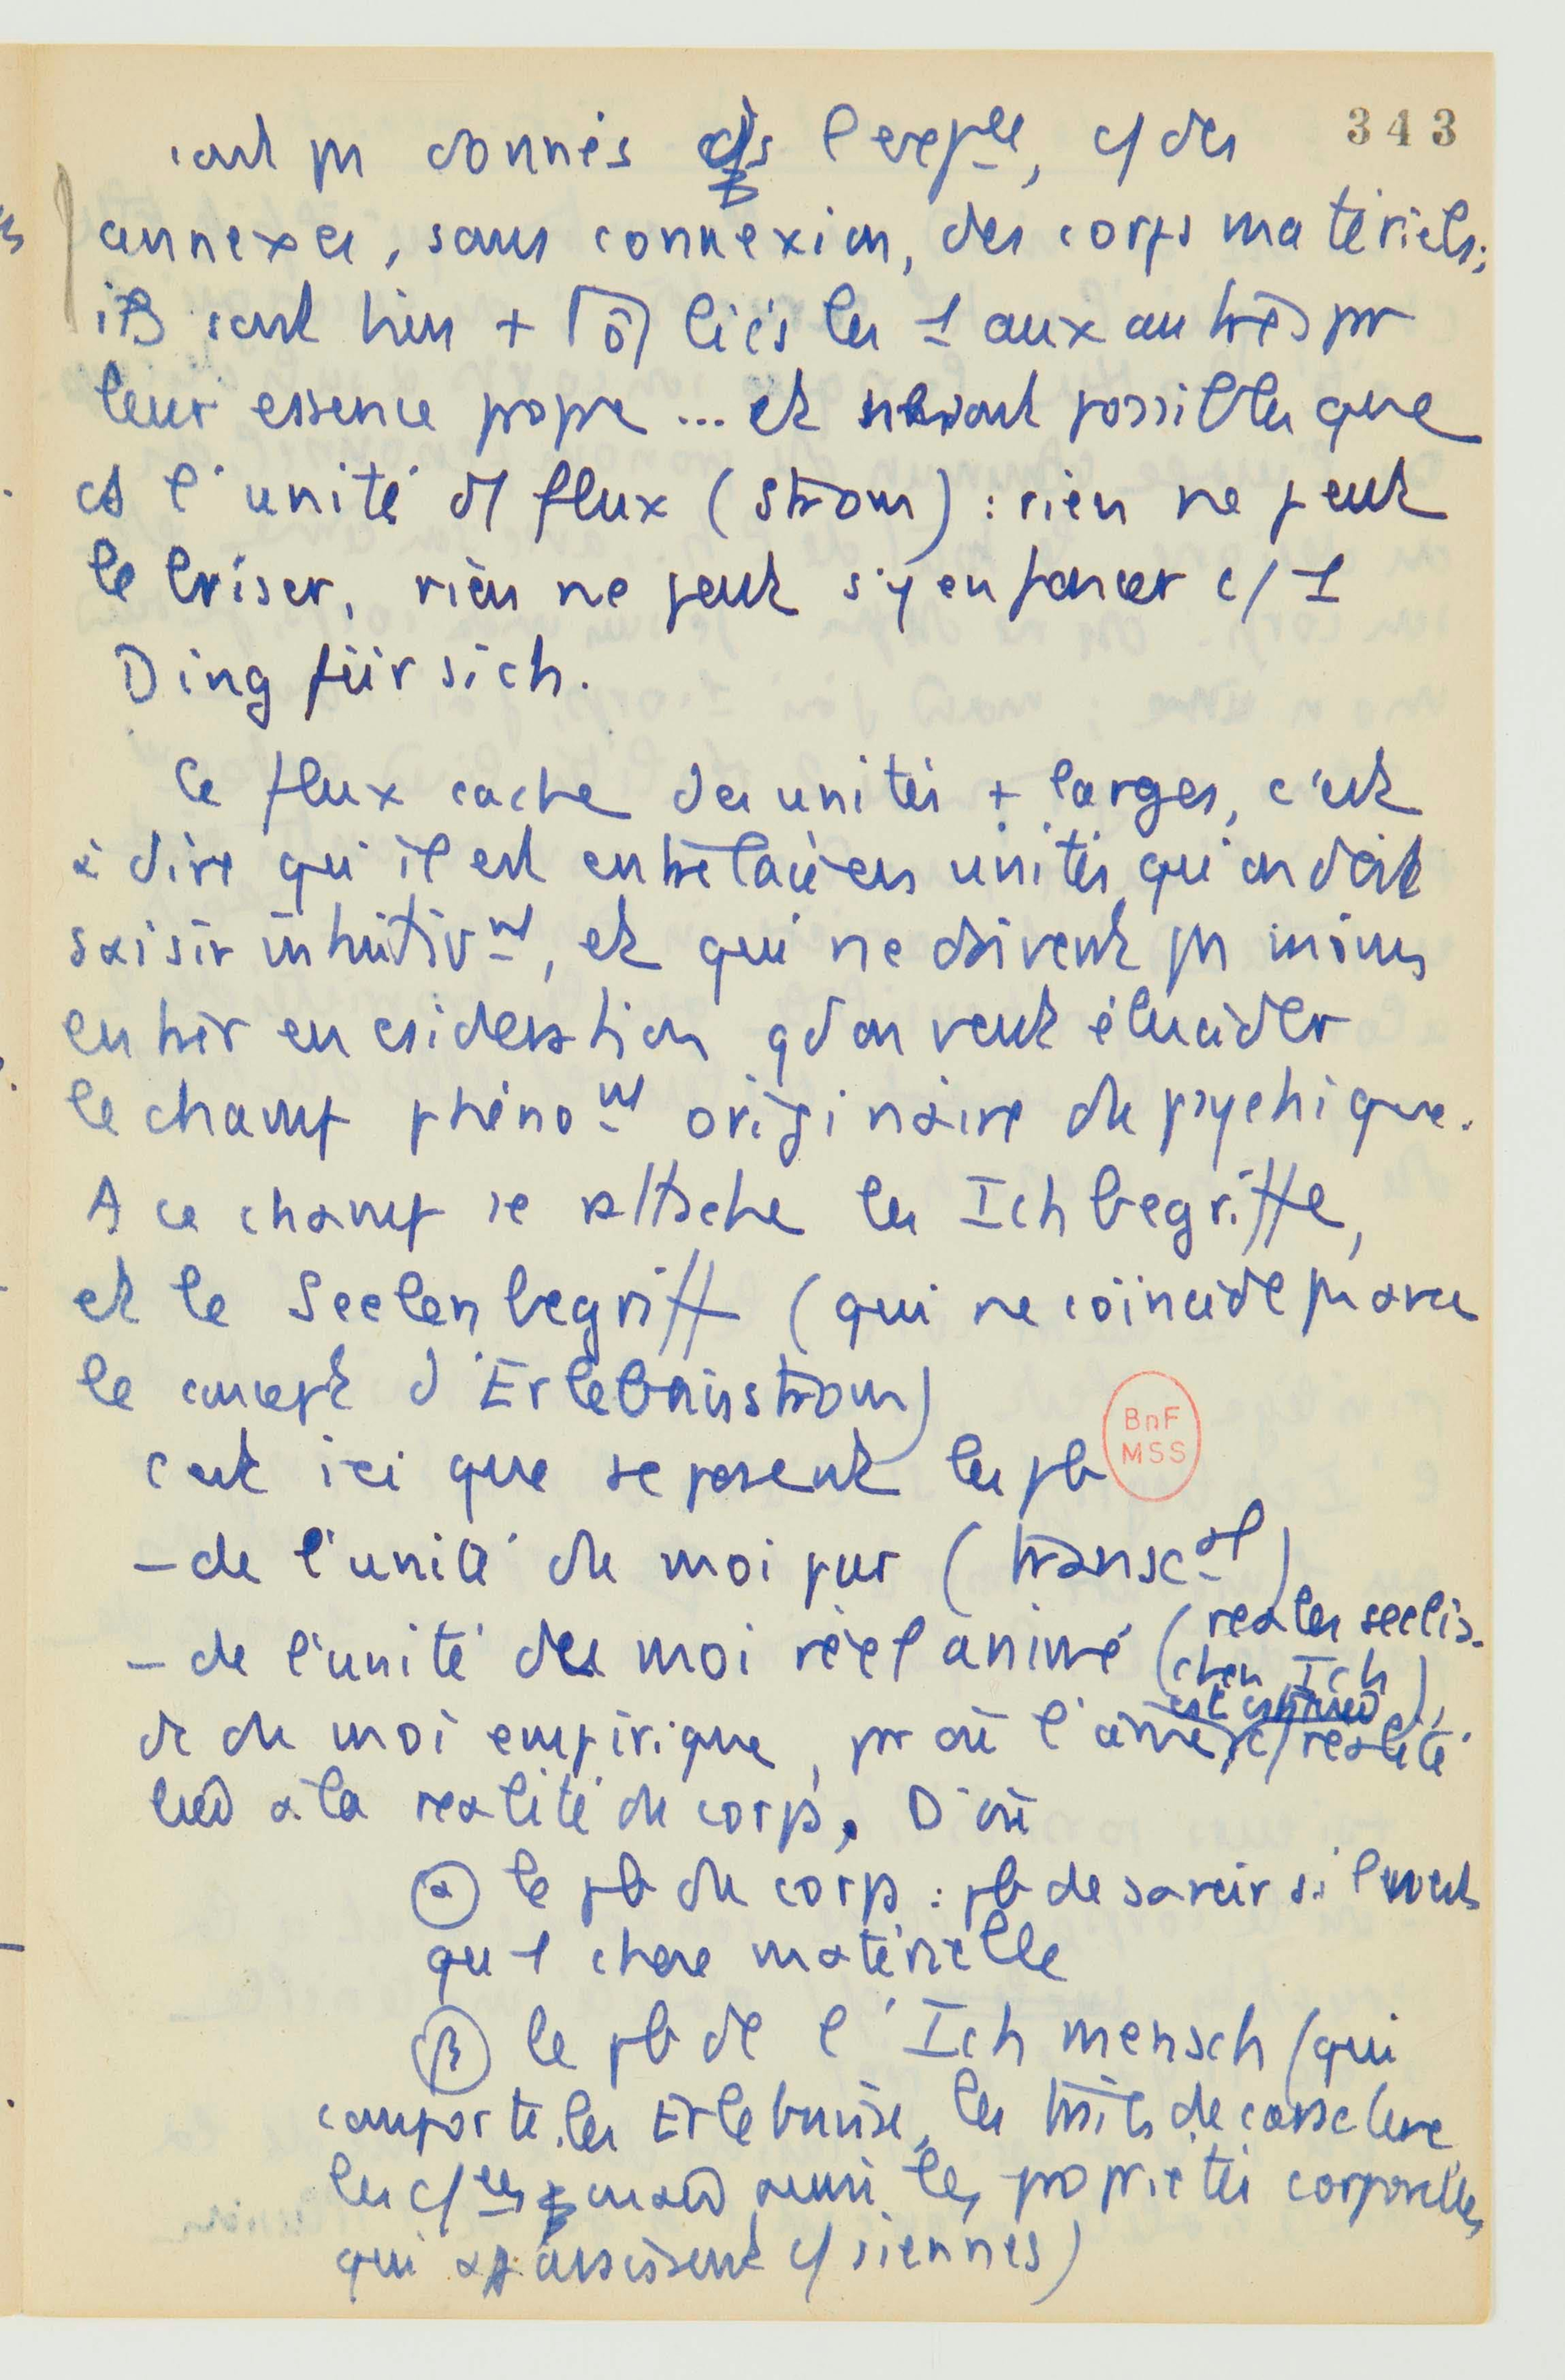 343
sont pas donnés ds l'expce, c/ des
annexes, sans connexion, des corps matériels ;
ils sont bien + liés les 1 aux autres par
leur essence propre ... et ne sont possibles que
ds l'unité d/ flux (Strom) : rien ne peut
le briser, rien ne peut s'y enfoncer c/ 1
Ding für sich.
Ce flux cache des unités + larges, c'est
à dire qu'il est entrelacé en unités qu'on doit
saisir intuitivnt, et qui ne doivent pas moins
entrer en csidération qd on veut élucider
le champ phénont originaire du psychique.
A ce champ se rattache les Ichbegriffe,
et le Seelenbegriff (qui ne coïncide pas avec
le concept d'Erlebnisstrom)
C'est ici que se posent les pb
BnF
MSS
- de l'unité du moi pur (transcal)
- de l'unité du moi réel animé (realen seelis-
chen Ich),
et du moi empirique, par où l'âme c/ réalité
est
liée à la réalité du corps. D'où
α le pb du corps : pb de savoir si l'on est
qu'1 chose matérielle
β le pb de l'Ich mensch (qui
comporte les Erlebnisse, les traits de caractère
les mais aussi les propriétés corporelles
qui apparaissent c/ siennes)